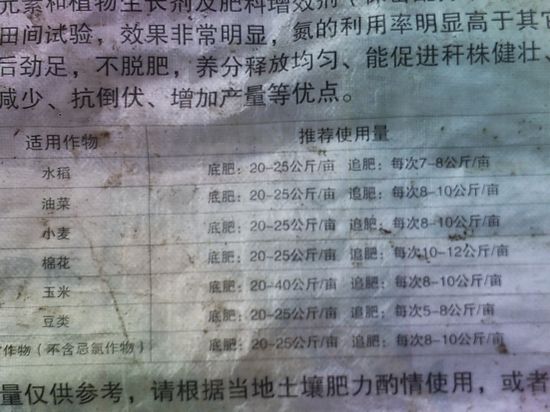 元素和植物生长剂及肥料增效剂
田间试验，效果非常明显，氮的利用率明显高于其它
后劲足，不脱肥，养分释放均匀、能促进秆株健壮、
减少、抗倒伏、增加产量等优点。
适用作物 推荐使用量
水稻 底肥：20-25公斤/亩 追肥：每次7-8公斤/亩
油菜 底肥：20-25公斤/亩 追肥：每次8-10公斤/亩
小麦 底肥：20-25公斤/亩 追肥：每次8-10公斤/亩
棉花 底肥：20-25公斤/亩 追肥：每次10-12公斤/亩
玉米 底肥：20-40公斤/亩 追肥：每次8-10公斤/亩
豆类 底肥：20-25公斤/亩 追肥：每次5-8公斤/亩
作物（不含忌氯作物） 底肥：20-25公斤/亩 追肥：每次8-10公斤/亩
量仅供参考，请根据当地土壤肥力酌情使用，或者